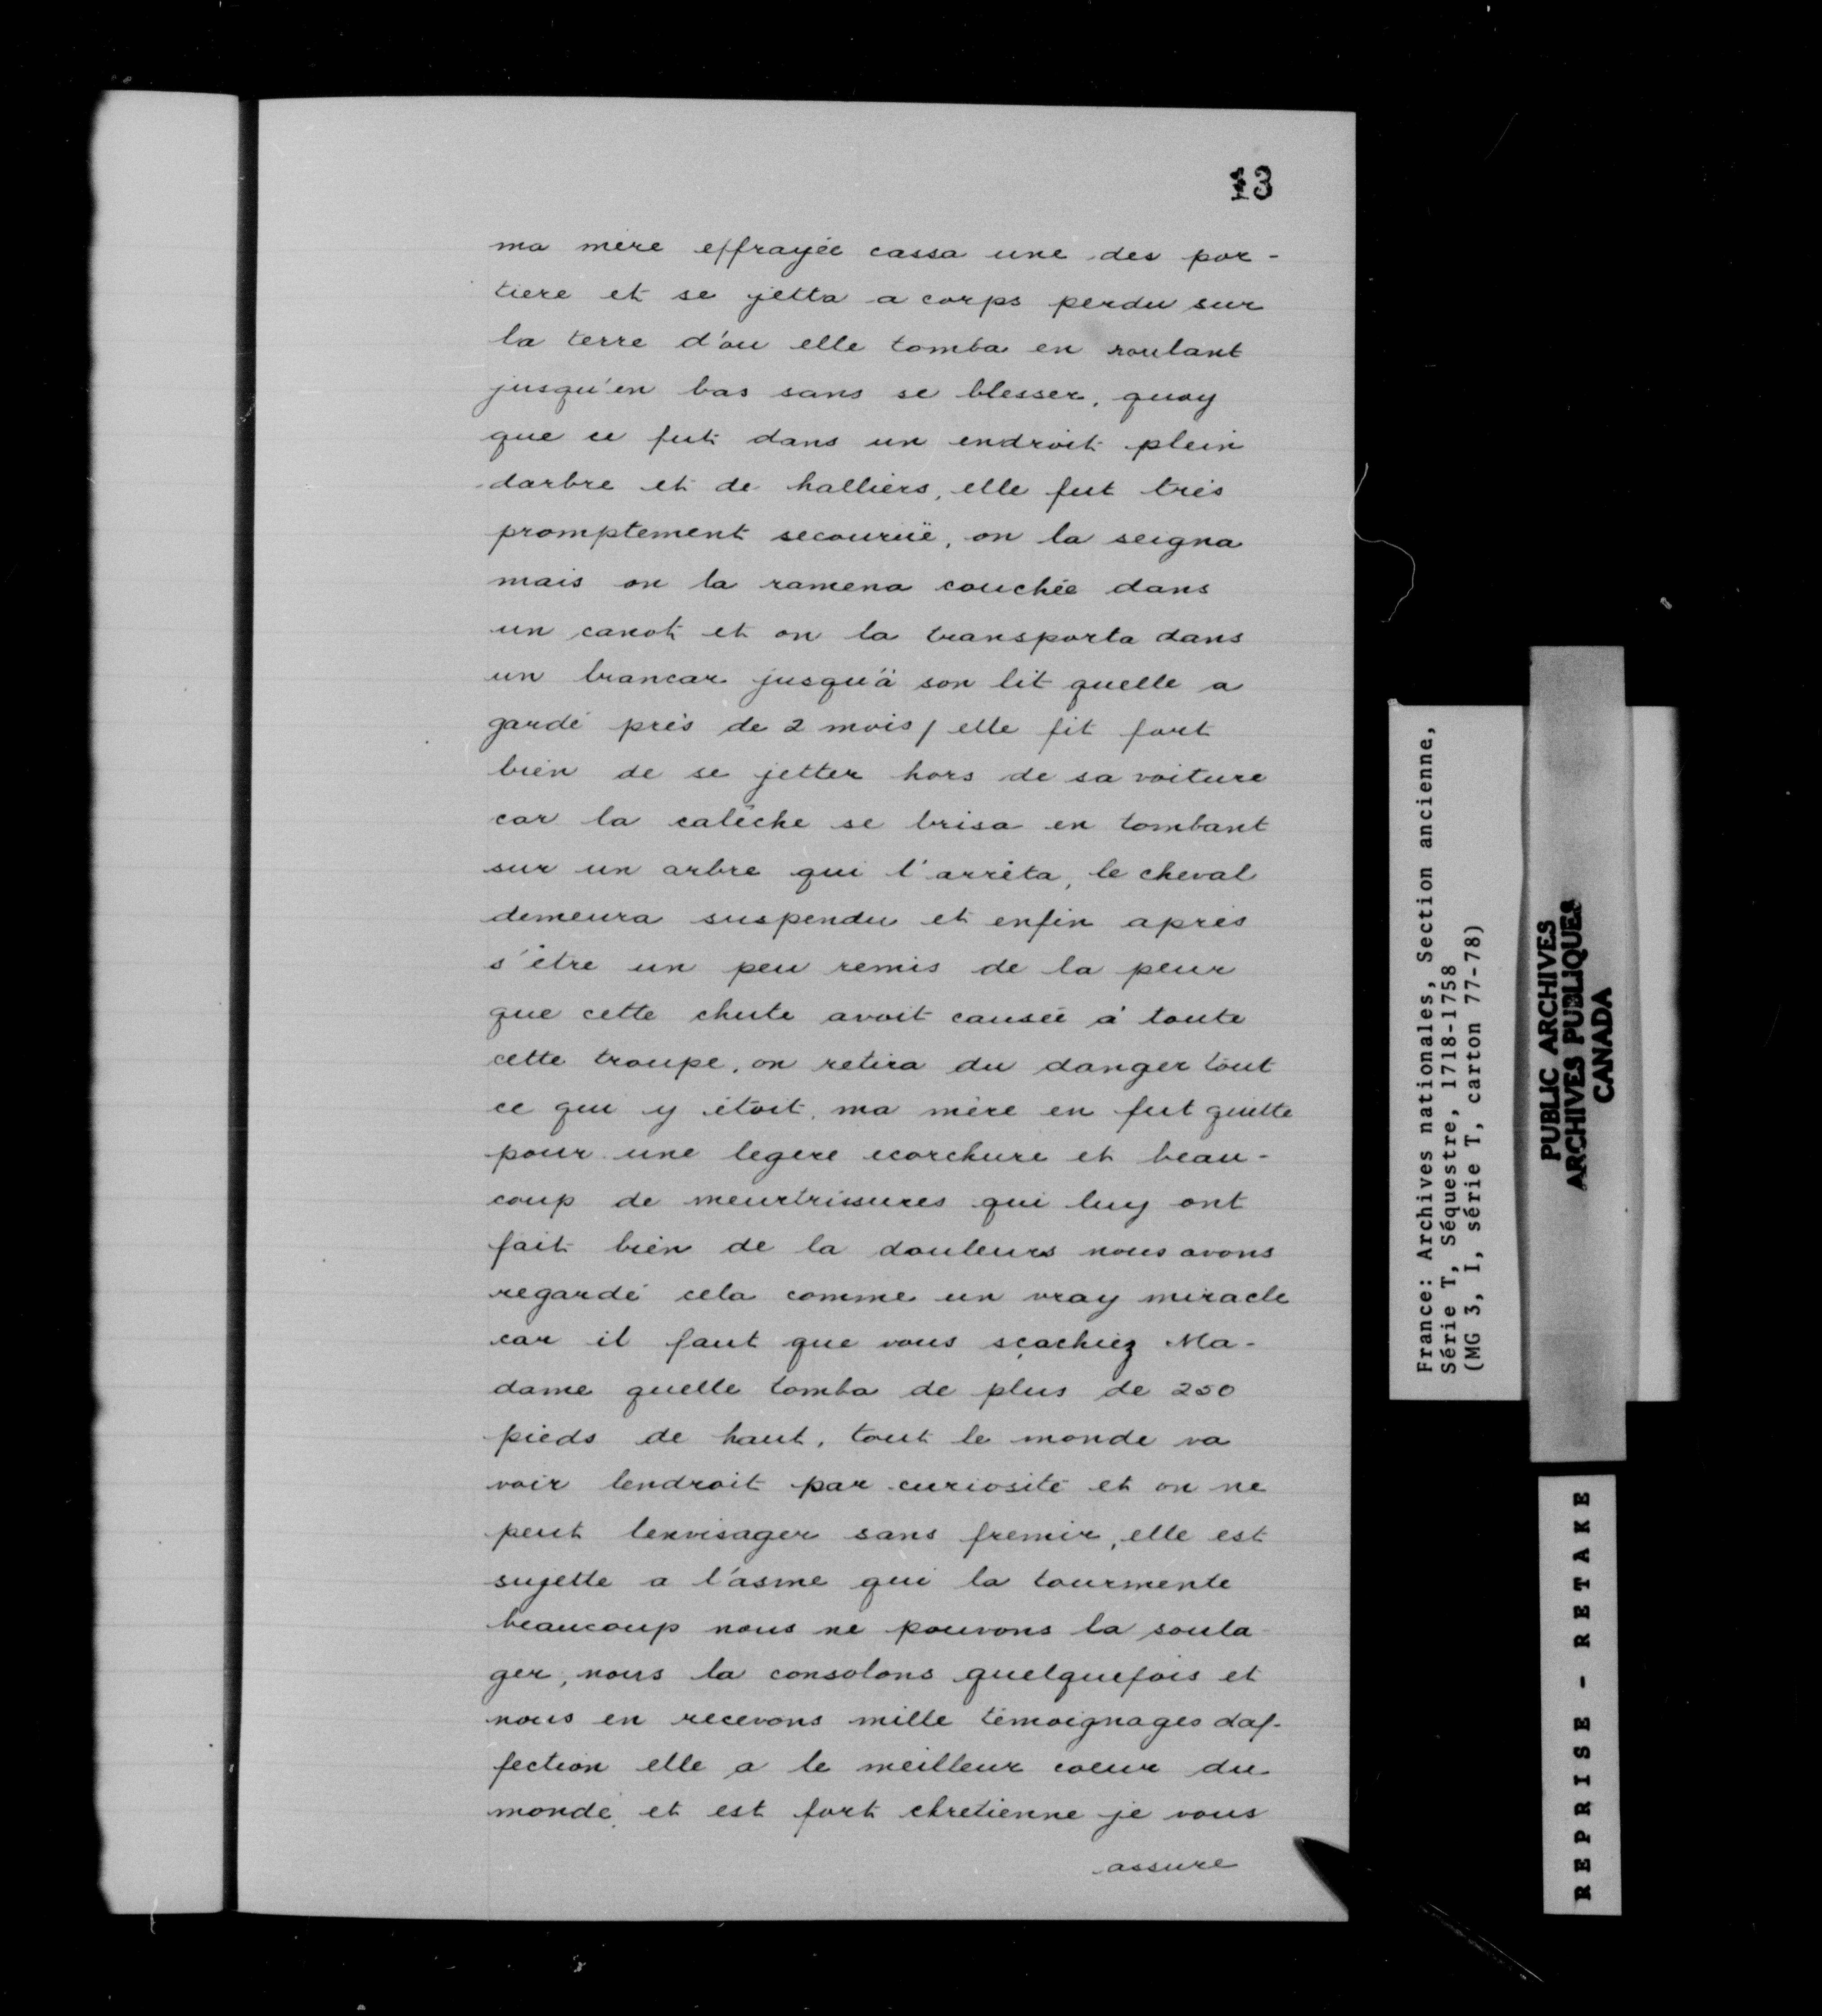 13
ma mère effrayée cassa une des por-
tiere et se jetta a corps perdu sur
la terre d'ou elle tomba en roulant
jusqu'en bas sans se blesser, quoy
que ce fut dans un endroit plein
darbre et de halliers, elle fut très
promptement secouruë, on la seigna
mais on la ramena couchée dans
un canot et on la transporta dans
un brancar jusqu'à son lit quelle a
gardé près de 2 mois / elle fit fort
bien de se jetter hors de sa voiture
car la calèche se brisa en tombant
sur un arbre qui l'arrêta, le cheval
demeura suspendu et enfin après
s'être un peu remis de la peur
que cette chute avoit causée à toute
cette troupe, on retira du danger tout
ce qui y étoit, ma mère en fut quitte
pour une legere ecorchure et beau-
coup de meurtrissures qui luy ont
fait bien de la douleurs nous avons
regardé cela comme un vray miracle
car il faut que vous sçachiez Ma-
dame quelle tomba de plus de 250
pieds de haut, tout le monde va
voir lendroit par curiosité et on ne
peut lenvisager sans fremir, elle est
sujette a l'asme qui la tourmente
beaucoup nous ne pouvons la soula-
ger, nous la consolons quelquefois et
nous en recevons mille témoignages daf-
fection elle a le meilleur coeur du
monde, et est fort chretienne je vous
assure
France: Archives nationales, Section ancienne,
Série T, Séquestre, 1718-1758
(MG 3, I, série T, carton 77-78)
PUBLIC ARCHIVES
ARCHIVES PUBLIQUES
CANADA
REPRISE - RETAKE